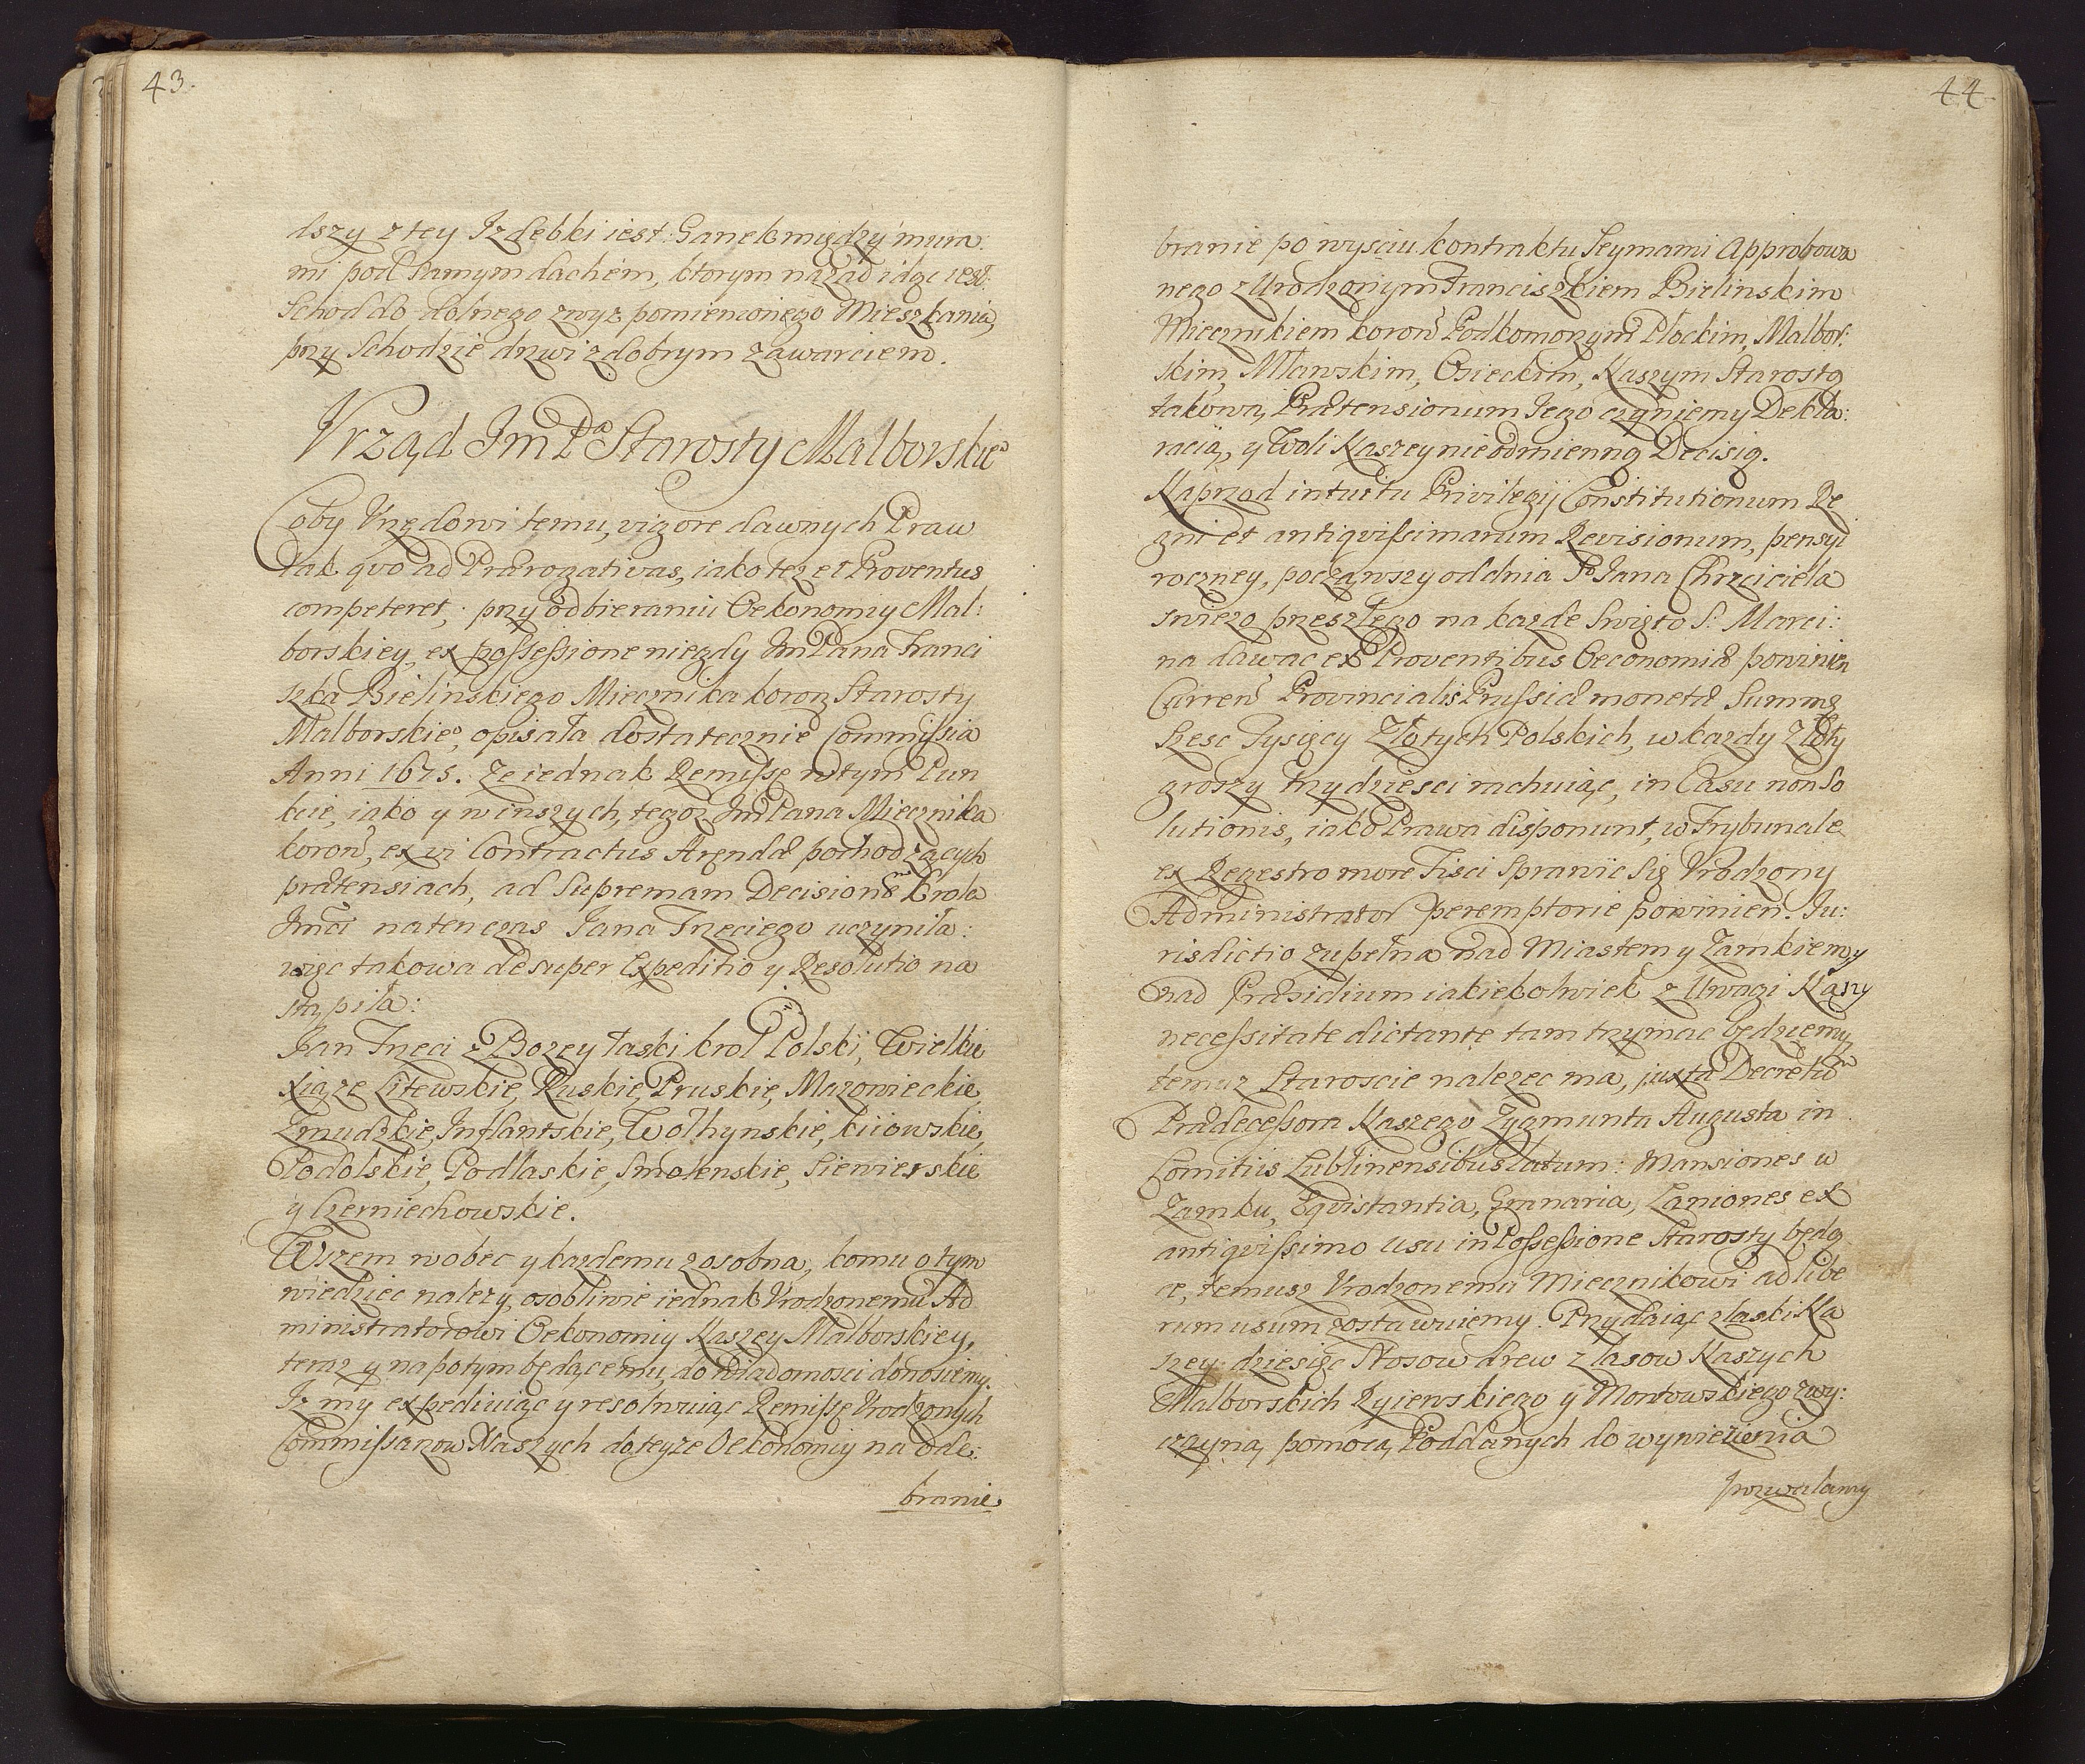 43.
lszy z tey Izdebki iest Ganek między mura
mi pod samym dachem, ktorym nazad idąc iest:
Schod do dolnego zwyz pomienionego Mieszkania,
przy Schodzie drzwi z dobrym zawarciem.
Vrząd Im Pa Starosty Malborskieo
Coby Vrzędowi temu, vigore dawnych Praw
tak qvo ad Prærogativas, iako tez et Proventus
competeret, przy odbieraniu Oekonomiy Mal:
borskiey, ex possessione niegdy Im Pana Franci
szka Bielinskiego Miecznika koron Starosty
Malborskieo, opisała dostatecznie Commissia
Anni 1675. Ze iednak Remissę w tym Pun
kcie, iako y w inszych, tegoz Im Pana Miecznika
koron, ex vi Contractus Arendæ pochodzących
prætensiach, ad Supremam Decisionem Krola
Imci natenczas Jana Trzeciego uczyniła:
więc takowa desuper Expeditio y Resolutio na
stąpiła:
Jan Trzeci z Bozey łaski krol Polski, Wielkie
Xiąze Litewskie, Ruskie, Pruskie, Mazowieckie,
Zmudzkie, Inflantskie, Wołhynskie, kiiowskie,
Podolskie, Podlaskie, Smolenskie, Siewierskie
y Czerniechowskie.
Wszem wobec y kazdemu zosobna, komu o tym
wiedziec nalezy, osobliwie iednak Vrodzonemu Ad
ministratorowi Oekonomiy Naszey Malborskiey,
teraz y napotym będącemu, do wiadomosci donosiemy.
Iz my expediuiąc y resolwuiąc Remissę Vrodzonych
Commissarzow Naszych do teyze Oekonomiy na ode:
branie
44.
branie po wysciu kontraktu Seymami Approbowa
nego z Urodzonym Franciszkiem Bielinskim
Miecznikiem koron Podkomorzym Płockim, Malbor:
skim, Mławskim, Osieckim, Naszym Starostą
takową, Prætensionum Jego czyniemy Dekla:
racią, y Woli Naszey nieodmienną Decisią.
Naprzod intuitu Privilegij Constitutionum Re
gni et antiqvissimarum Revisionum, pensyi
roczney, począwszy od dnia So Jana Chrzciciela
swiezo przeszłego na kazde Swięto S: Marci:
na dawac ex Proventibus Oeconomiæ powinien
Curren Provincialis Prussiæ monetæ Summę
Szesc Tysięcy Złotych Polskich, w kazdy Złoty
groszy trzydziesci rachuiąc, in Casu non So
lutionis, iako Prawa disponunt, w Trybunale
ex Regestro more Fisci Sprawic Się Vrodzony
Administrator peremptorie powinien. Ju:
risdictio zupełna nad Miastem y Zamkiem, y
nad Præsidium iakiekolwiek z Uwagi Naszy
necessitate dictante tam trzymac będziemy,
temuz Staroscie nalezec ma, juxta Decretum
Prædecessora Naszego Zygmunta Augusta in
Comitiis Lublinensibus latum: Mansiones w
Zamku, Eqvistantia, Granaria, Laniones ex
antiqvissimo usu in Possessione Starosty będą
ce, temusz Vrodzonemu Miecznikowi ad libe
rum usum zostawuiemy. Przydaiąc z łaski Na
szey: dziesięc Stosow drew z lasow Naszych
Malborskich Ryiewskiego y Montowskiego zwy:
czayną, pomocą, Poddanych do wywiezienia
pozwalamy